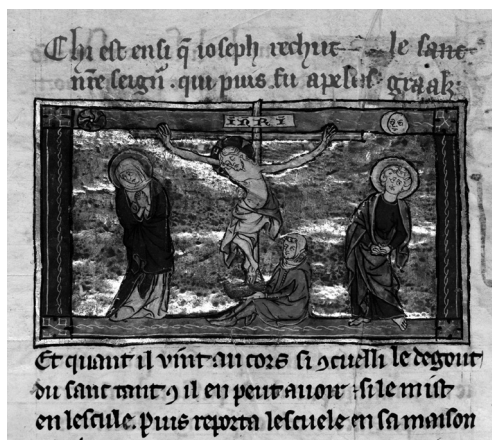 Chi est ensi q̃ ioseph rechut le sanc
nr̃e seignr̃ . qui puis fu apeles graal
INRI
Et quant il vint au cors si ꝯcuelli le degout
du sanc tant ꝯ il en peut auoir . si le mist
en lescule . puis reporta lescuele en sa maison